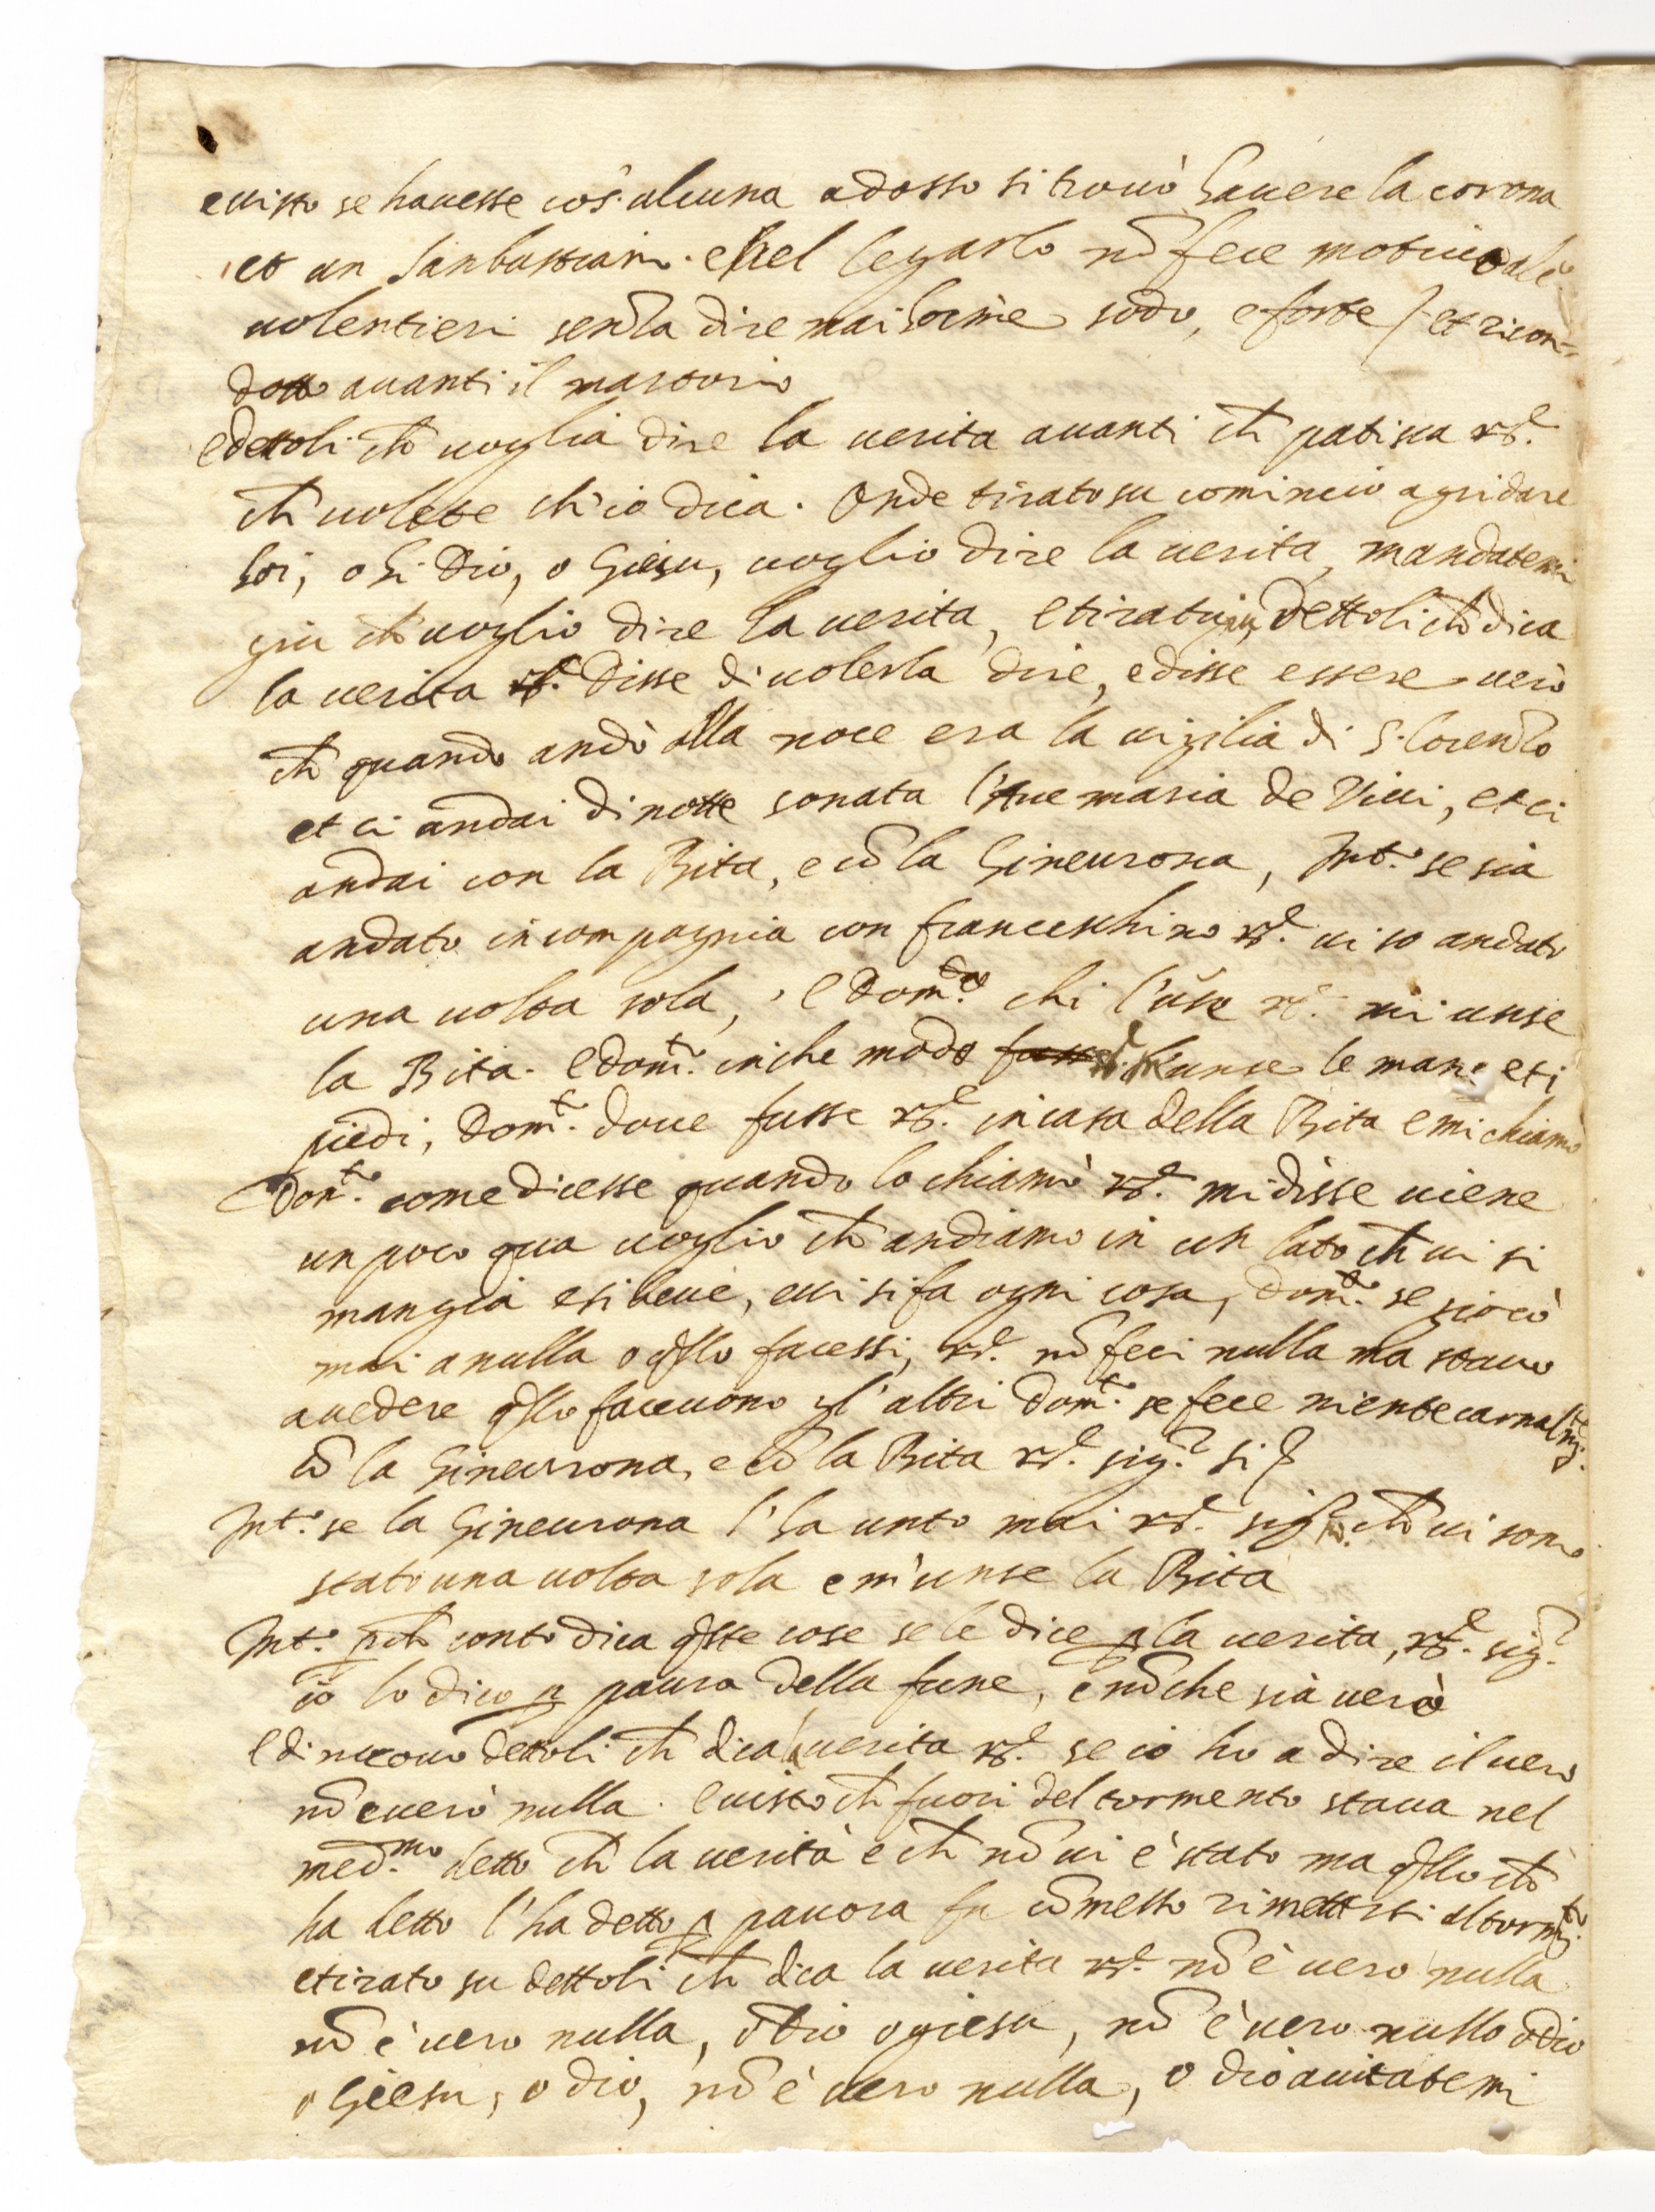 e visto se havesse cos' alcuna adosso si trovò havere la corona
et un Sanbastiano. e nel legarlo nō fece motivo
volentieri senza dire mai hoimè sodo, e forte / et ricon-
dotto avanti il martorio
e dettoli ch̄ voglia dire la verita avanti ch̄ patisca rs.e
ch̄ volete ch'io dica. Onde tirato su cominciò a gridare
hoi, ohi Dio, o Giesu, voglio dire la verita, mandatemi
giu ch̄ voglio dire la verita, e tirato giu dettoli ch̄ dica
la verita rs.e disse di volerla dire, e disse essere vero
ch̄ quando andò alla noce era la vigilia di S. lorenzo
et ci andai di notte sonata l'Ave maria de Vivi, et ci
andai con la Bita, e cō la Gineurona, Int.o se sia
andato in compagnia con franceschino rs.e vi so andato
una volta sola, e Dom.do chi l'ūse rs.e mi unse
la Bita. e Dom.to in che modo rs.e m'unse le mane et i
piedi, Dom.to dove fusse rs.e in casa della Bita e mi chiamò
Dom.to come dicesse quando lo chiamò rs.e mi disse viene
un poco qua voglio ch̄ andiamo in un lato ch̄ vi si
mangia e si beve, e vi si fa ogni cosa, Dom.to se giocò
mai a nulla o q̄llo facessi, rs.e nō feci nulla ma stavo
a vedere q̄llo facevono gl'altri Dom.to se fece niente carnalm.te
cō la Gineurona, e cō la Bita rs.e sig.r si
Int.o se la Gineurona l'ha unto mai rs.e sig.r no. ch̄ vi sono
stato una volta sola e m'unse la Bita
Int.o p ch̄ conto dica q̄ste cose se le dice p la verita, rs.e sig.r
io lo dico p paura della fune, e nō che sia vero
e di nuovo dettoli ch̄ dica la verita rs.e se io ho a dire il vero
nō è vero nulla. e visto ch̄ fuori del tormento stava nel
med.mo detto ch̄ la verità è ch̄ nō vi è stato ma q̄llo ch̄
ha detto l'ha detto p pavora fu cōmesso rimettersi al torm.to
e tirato su dettoli ch̄ dica la verita rs.e nō è vero nulla
nō è vero nulla, o Dio o giesu, nō è vero nulla o dio
o Giesu, o dio, nō è vero nulla, o dio aiutatemi